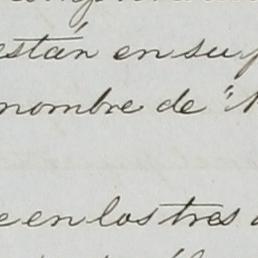 están en su
nombre de "
e en los tres